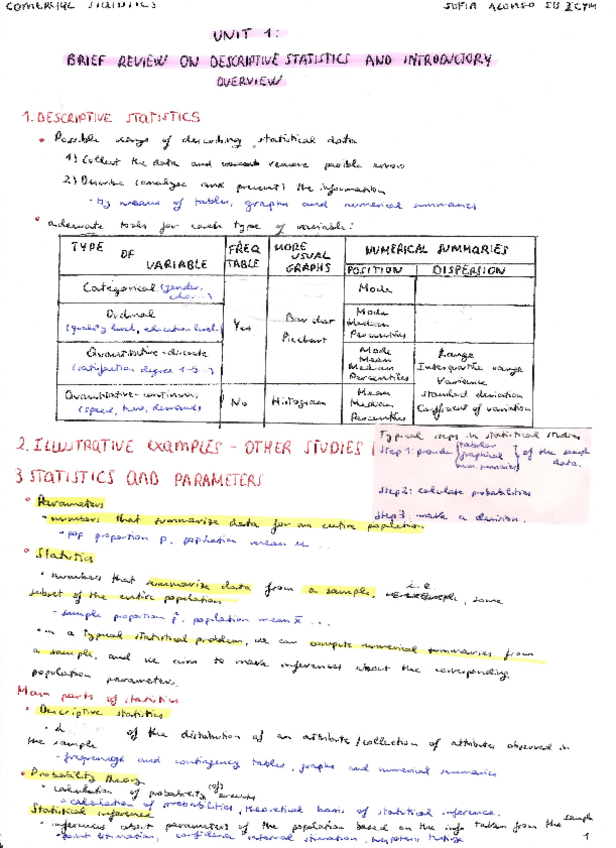 COMERCIAL STATISTICS
SOFIA ALONSO
UNIT 1:
BRIEF REVIEW ON DESCRIPTIVE STATISTICS AND INTRODUCTORY
OVERVIEW
1. DESCRIPTIVE STATISTICS
• Possible ways of describing statistical data
1) Collect the data and remove possible errors
2) Describe (analyse and present) the information
- By means of tables, graphs and numerical summaries
• adequate tools for each type of variable:
TYPE OF VARIABLE
FREQ TABLE
MORE USUAL GRAPHS
NUMERICAL SUMMARIES
POSITION
DISPERSION
Categorical (gender,
Mode
Ordinal
(quality level, education level)
Yes
Bar chart
Piechart
Mode
Median
Percentiles
Quantitative-discrete
(satisfaction degree 1-5..)
Mode
Mean
Median
Percentiles
Range
Interquartile range
Variance
Standard deviation
Coefficient of variation
Quantitative-continuous
(speed, time, demand)
No
Histogram
Mean
Median
Percentiles
2. ILLUSTRATIVE EXAMPLES - OTHER STUDIES
Typical steps in statistical studies
Step 1: provide tabular graphical num. summaries of the sample data.
Step 2: calculate probabilities
Step 3: make a decision.
3 STATISTICS AND PARAMETERS
• Parameters
- numbers that summarise data for an entire population
- pop proportion p, population mean
• Statistics
• numbers that summarise data from a sample, i.e. some
subset of the entire population
- sample proportion p̂, population mean x̄ ...
• In a typical statistical problem, we can compute numerical summaries from
a sample, and we aim to make inferences about the corresponding
population parameters.
Main parts of statistics
• Descriptive statistics
of the distribution of an attribute/collection of attributes observed in
the sample
- frequency and contingency tables, graphs and numerical summaries
• Probability theory
• calculation of probability (of) events
- calculation of probabilities, theoretical basis of statistical inference.
Statistical inference
• inferences about parameters of the population based on the info taken from the sample
- point estimation, confidence interval estimation, hypothesis testing
1